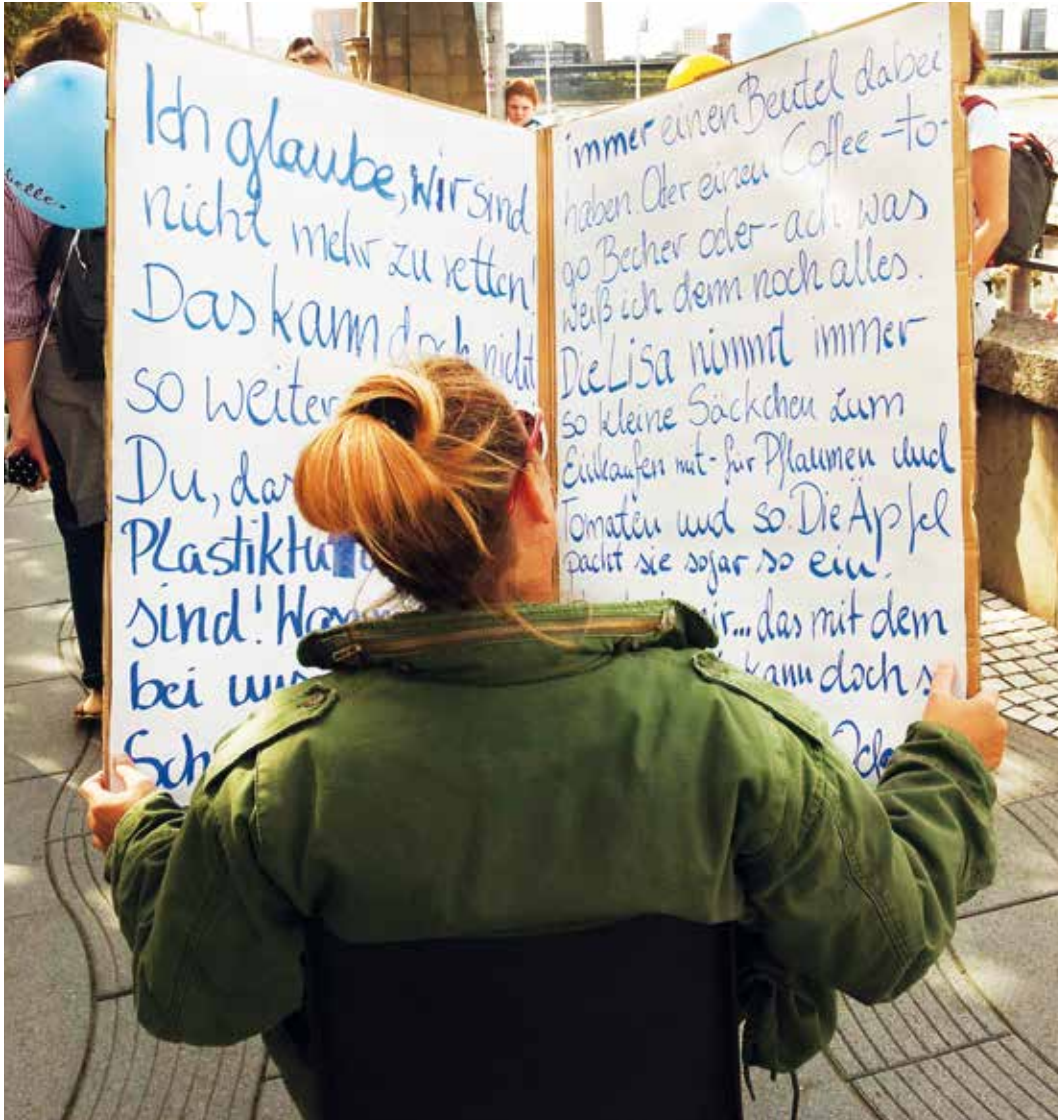 Ich glaube, wir sind
nicht mehr zu retten!
Das kann doch nicht
so weiter
Du, das
Plastiktü
sind! Wo
bei uns
Sch
immer einen Beutel dabei
haben. Oder einen Coffee-to-
go Becher oder - ach, was
weiß ich denn noch alles.
Die Lisa nimmt immer
so kleine Säckchen zum
Einkaufen mit - für Pflaumen und
Tomaten und so. Die Äpfel
packt sie sogar so ein.
ir... das mit dem
kann doch s
Ode
elle.